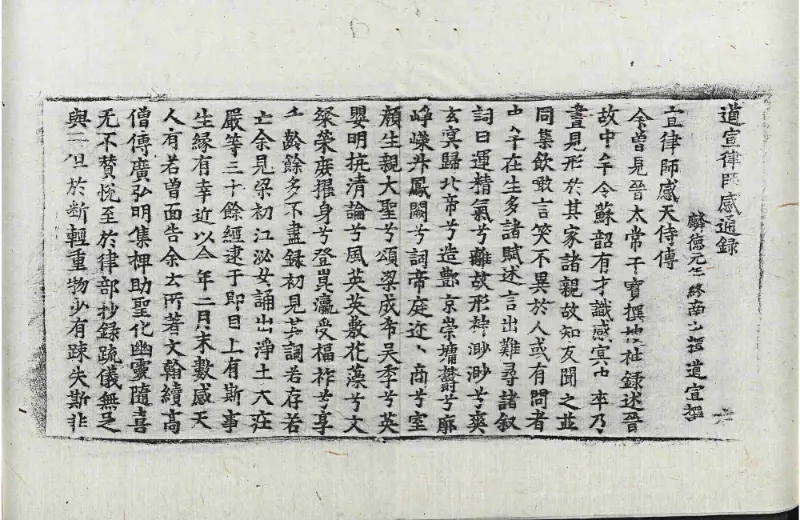 道宣律師感通錄
麟德元年終南山釋道宣撰
宣律師感天侍傳
余曾見晉太常干寶撰搜神錄述晉
故中牟令蘇韶有才識感冥中卒乃
晝見形於其家諸親故知友聞之並
同集飲噉言笑不異於人或有問者
中牟在生多諸賦述言出難尋諸叙
詞曰運精氣兮離故形神渺渺兮爽
玄冥歸北帝兮造酆京崇墉欝兮廓
崢嶸升鳳闕兮詞帝庭迩卜商兮室
顔生親大聖兮頌梁成希吴季兮英
嬰明抗清論兮風英英敷花藻兮文
粲榮庶擢身兮登崑瀛受福祚兮享
千齡餘多不盡錄初見其詞若存若
亡余見梁初江泌女誦出淨土大庄
嚴等三十餘經逮于即目上有斯事
生縁有幸近以今年二月末數感天
人有若曾面告余云所著文翰續高
僧傳廣弘明集裨助聖化幽靈隨喜
无不賛悅至於律部抄錄疏儀無足
與二但於断輕重物少有踈失斯非